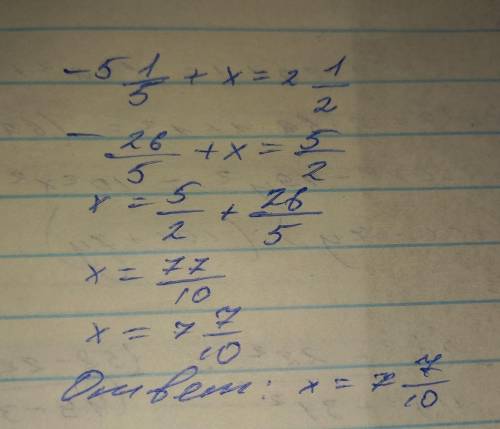 -5 1/5 + x = 2 1/2
- 26/5 + x = 5/2
x = 5/2 + 26/5
x = 77/10
x = 7 7/10
Ответ: x = 7 7/10